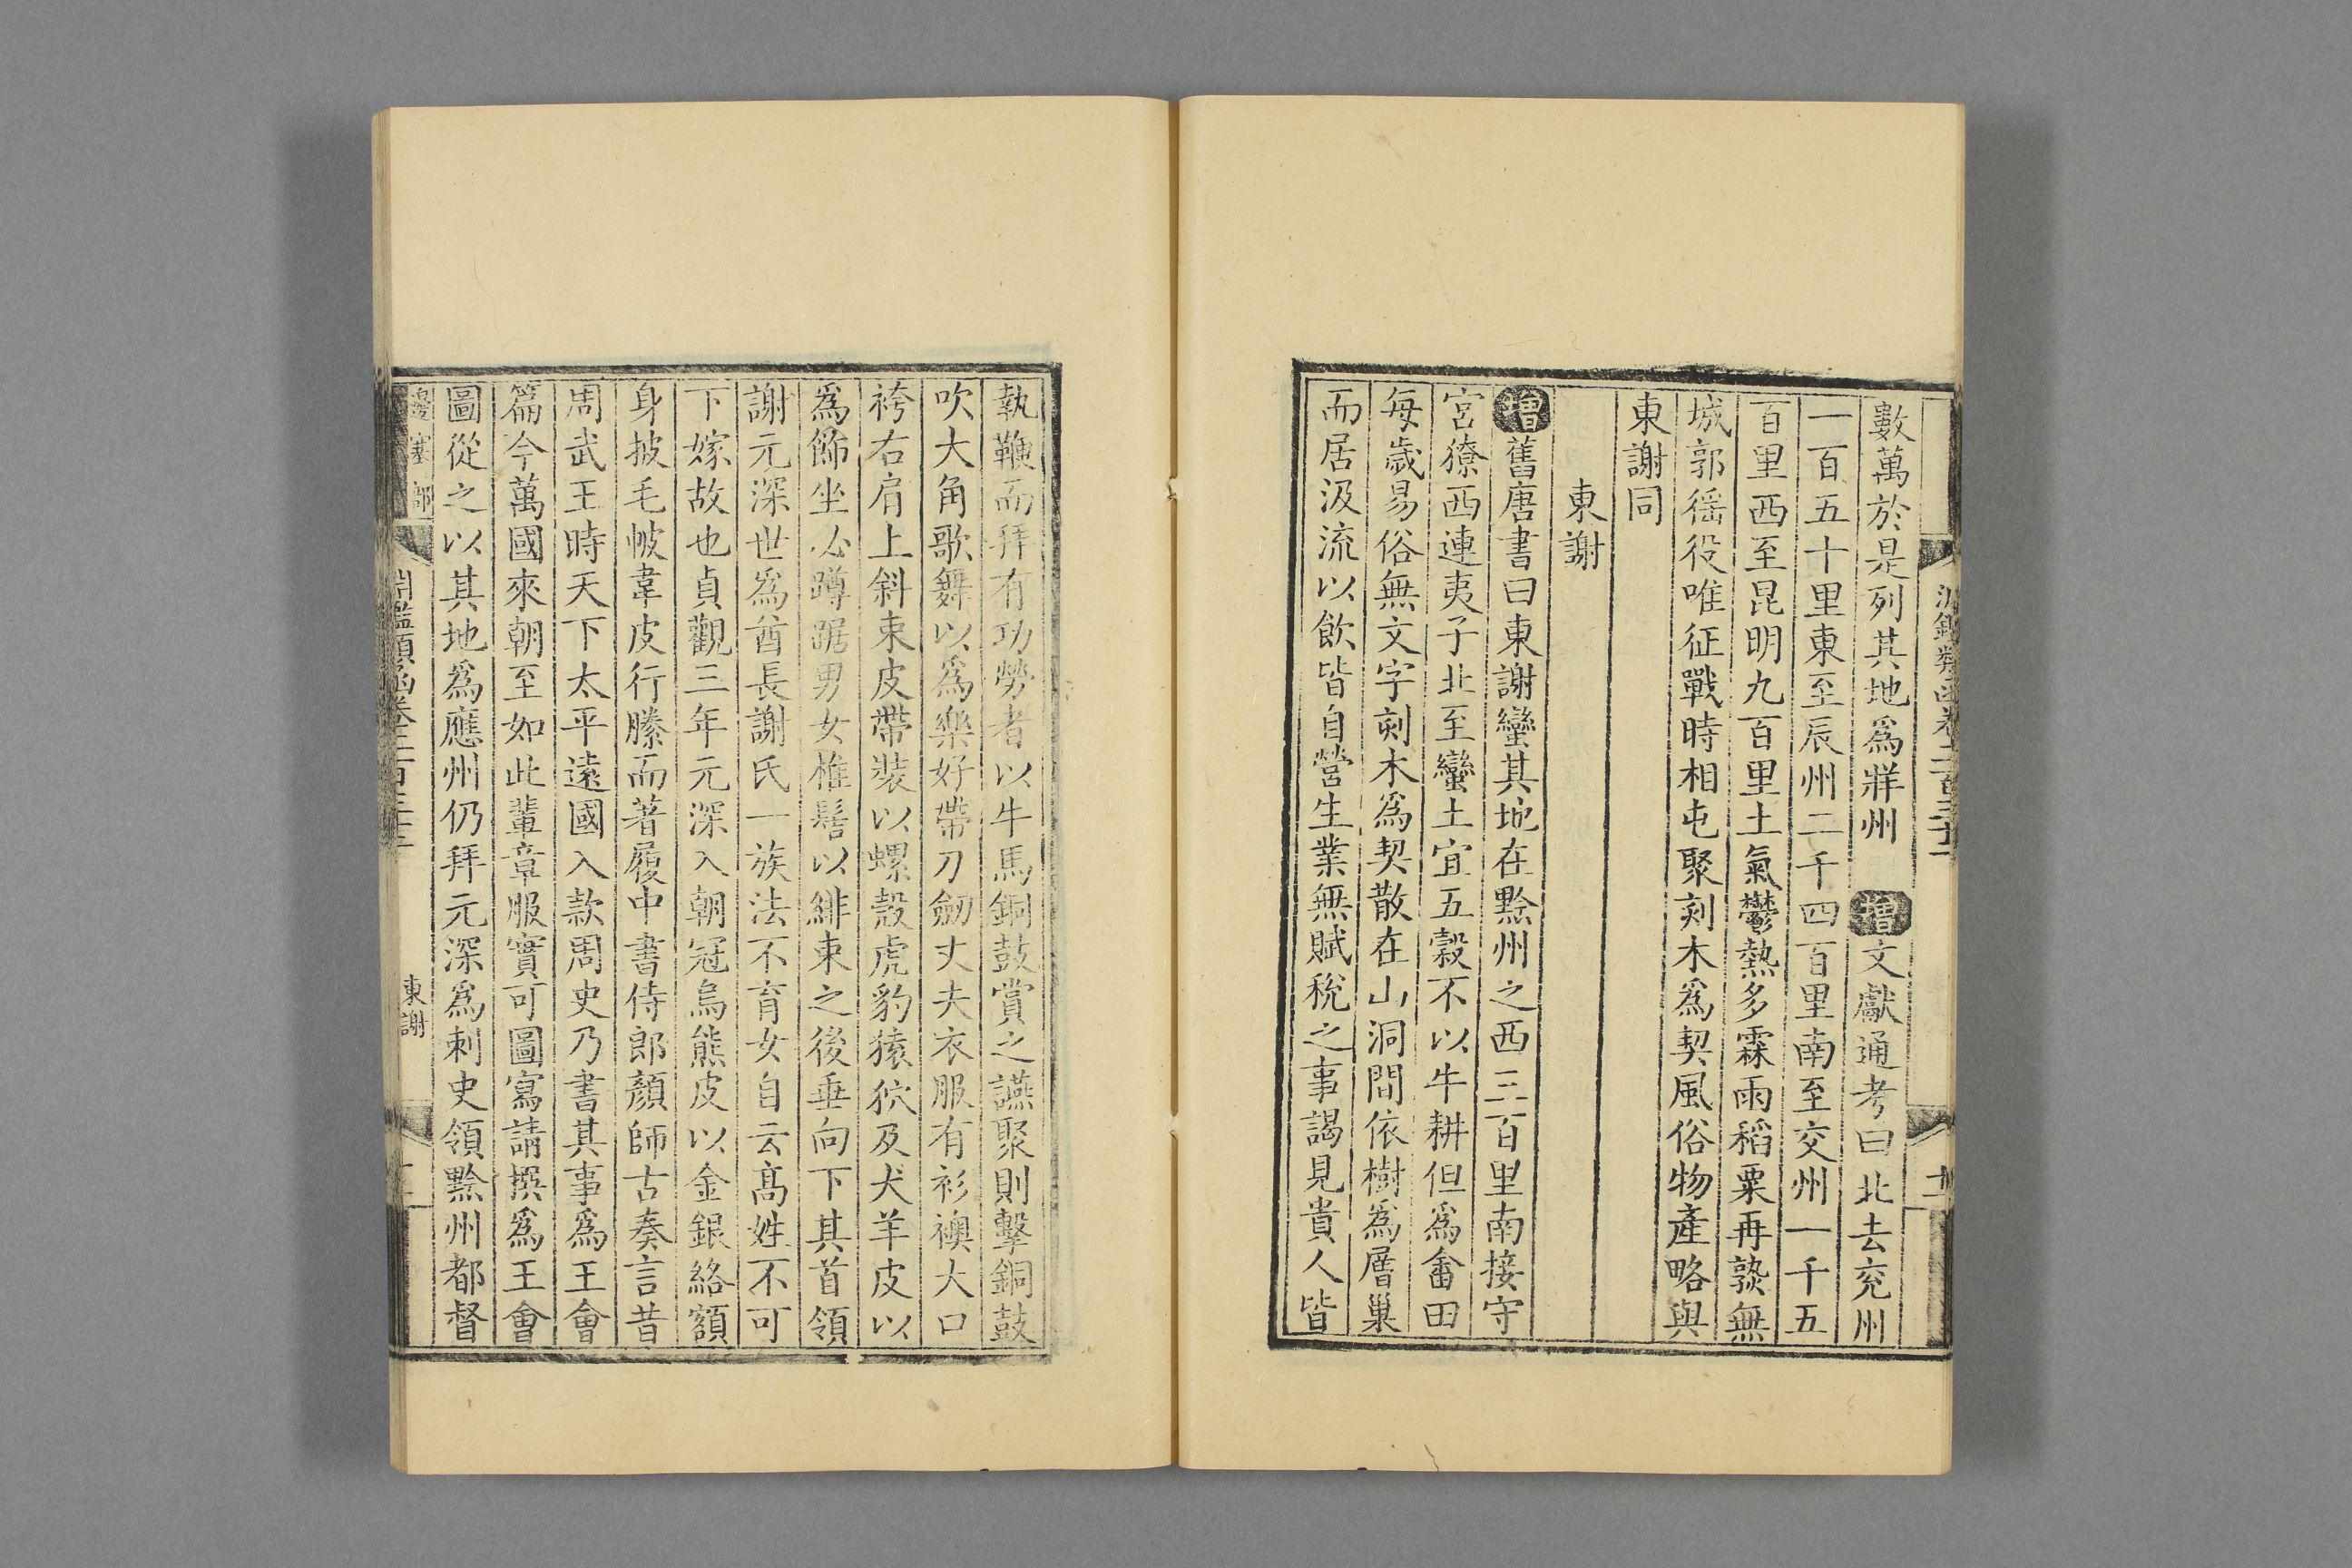 數萬於是列其地爲牂州 增文獻通考曰北去兖州
一百五十里東至辰州二千四百里南至交州一千五
百里西至昆明九百里土氣鬱熱多霖雨稻粟再熟無
城郭徭役唯征戰時相屯聚刻木爲契風俗物產略與
東謝同
東謝
增舊唐書曰東謝蠻其地在黔州之西三百里南接守
宮獠西連夷子北至蠻土宜五穀不以牛耕但爲畬田
每歲易俗無文字刻木爲契散在山洞間依樹爲層巢
而居汲流以飲皆自營生業無賦稅之事謁見貴人皆
執鞭而拜有功勞者以牛馬銅鼓賞之讌聚則擊銅鼓
吹大角歌舞以爲樂好帶刀劒丈夫衣服有衫襖大口
袴右肩上斜束皮帶裝以螺殼虎豹猿狖及犬羊皮以
爲飾坐必蹲踞男女椎髻以緋束之後垂向下其首領
謝元深世爲酋長謝氏一族法不育女自云高姓不可
下嫁故也貞觀三年元深入朝冠烏熊皮以金銀絡額
身披毛帔韋皮行縢而著履中書侍郎顏師古奏言昔
周武王時天下太平遠國入款周史乃書其事爲王會
篇今萬國來朝至如此輩章服實可圖寫請撰爲王會
圖從之以其地爲應州仍拜元深爲刺史領黔州都督
邊塞部
淵鑑類函卷二百三十二
東謝